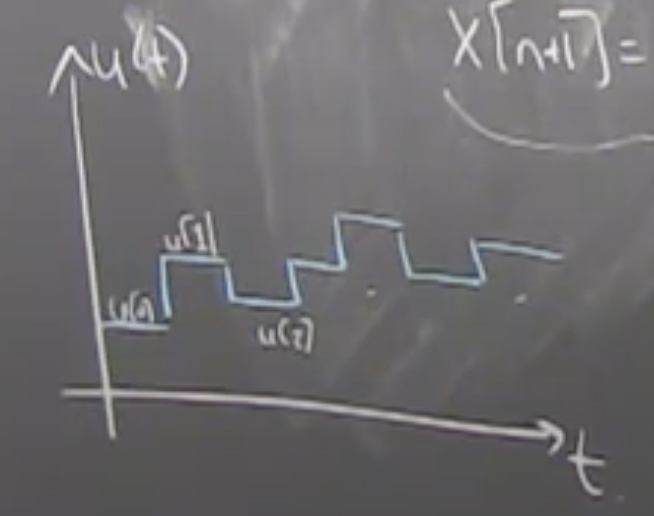 u(t)
x[n+1]=
u[1]
u[0]
u[2]
t